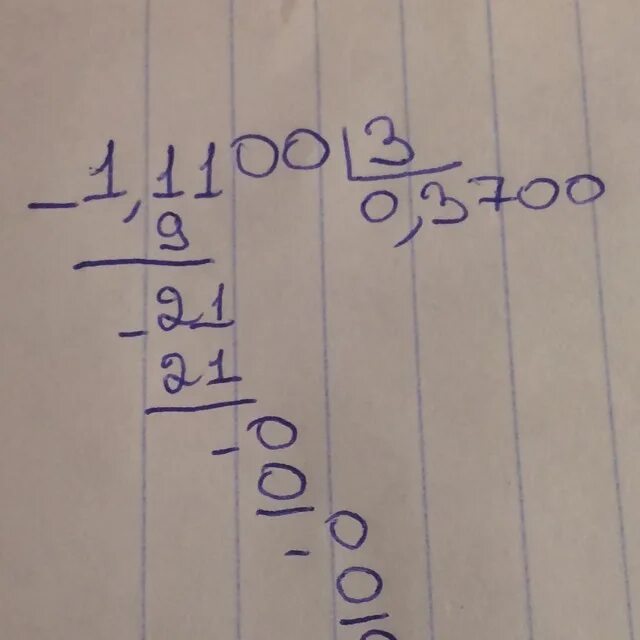 - 1,1100 3
9 0,3700
- 21
21
- 0
0
- 0
0
0